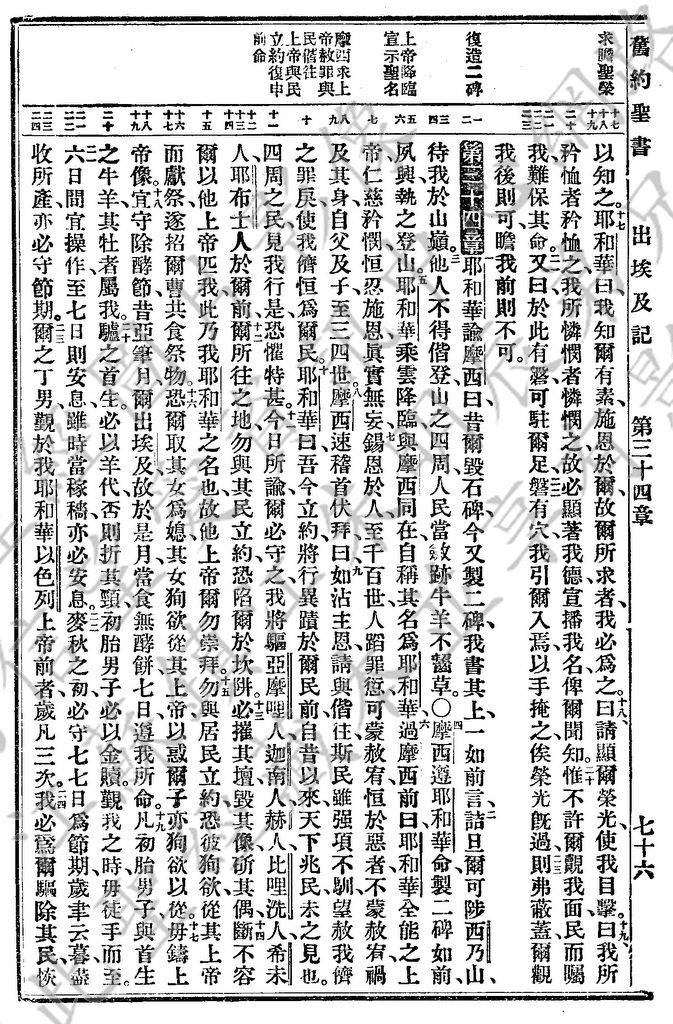 舊約聖書 出埃及記 第三十四章 七十六
求瞻聖榮
復造二碑
上帝降臨
宣示聖名
摩西求上
帝赦罪與
民偕往
上帝與民
立約復申
前命
以知之、十七耶和華曰、我知爾有素、施恩於爾、故爾所求者、我必爲之。十八曰、請顯爾榮光、使我目擊。十九曰、我所
矜恤者矜恤之、我所憐憫者憐憫之、故必顯著我德、宣播我名、俾爾聞知。二十惟不許爾覿我面、民而矚
我、難保其命、二一又曰、於此有磐、可駐爾足、二二磐有穴、我引爾入焉、以手掩之、俟榮光旣過、二三則弗蔽蓋、爾觀
我後則可、瞻我前則不可。
第三十四章 一耶和華諭摩西曰、昔爾毀石碑、今又製二碑、我書其上、一如前言、二詰旦爾可陟西乃山、
待我於山巔、三他人不得偕登、山之四周、人民當斂跡、牛羊不齧草。〇四摩西遵耶和華命、製二碑如前、
夙興執之登山、五耶和華乘雲降臨、與摩西同在、自稱其名爲耶和華、六過摩西前曰、耶和華全能之上
帝、仁慈矜憫、恒忍施恩、眞實無妄、七錫恩於人、至千百世、人蹈罪愆、可蒙赦宥、恒於惡者、不蒙赦宥、禍
及其身、自父及子、至三四世。八摩西速稽首伏拜曰、九如沾主恩、請與偕往、斯民雖强項不馴、望赦我儕
之罪戾、使我儕恒爲爾民。十耶和華曰、吾今立約、將行異蹟於爾民前、自昔以來、天下兆民未之見也、
四周之民、見我行是、恐懼特甚、十一今日所諭、爾必守之、我將驅亞摩哩人、迦南人、赫人、比哩洗人、希未
人、耶布士人於爾前、十二爾所往之地、勿與其民立約、恐陷爾於坎阱、十三必摧其壇、毀其像、斫其偶、十四斷不容
爾以他上帝匹我、此乃我耶和華之名也、故他上帝爾勿崇拜。十五勿與居民立約、恐彼狥欲從其上帝
而獻祭、遂招爾曹、共食祭物、十六恐爾取其女爲媳、其女狥欲從其上帝、以惑爾子、亦狥欲以從、十七毋鑄上
帝像、十八宜守除酵節、昔亞筆月爾出埃及、故於是月當食無酵餅七日、遵我所命、十九凡初胎男子、與首生
之牛羊、其牡者屬我、二十驢之首生、必以羊代、否則折其頸、初胎男子必以金贖、覲我之時、毋徒手而至。
二一六日間宜操作、至七日則安息、雖時當稼穡、亦必安息。二二麥秋之初、必守七七日爲節期、歲聿云暮、盡
收所產、亦必守節期。二三爾之丁男、覲於我耶和華以色列上帝前者、歲凡三次、二四我必爲爾驅除其民、恢